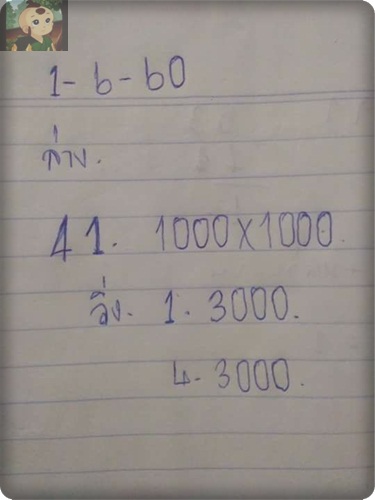 1-6-60
ล่าง.
41. 1000x1000.
วิ่ง. 1. 3000.
4. 3000.